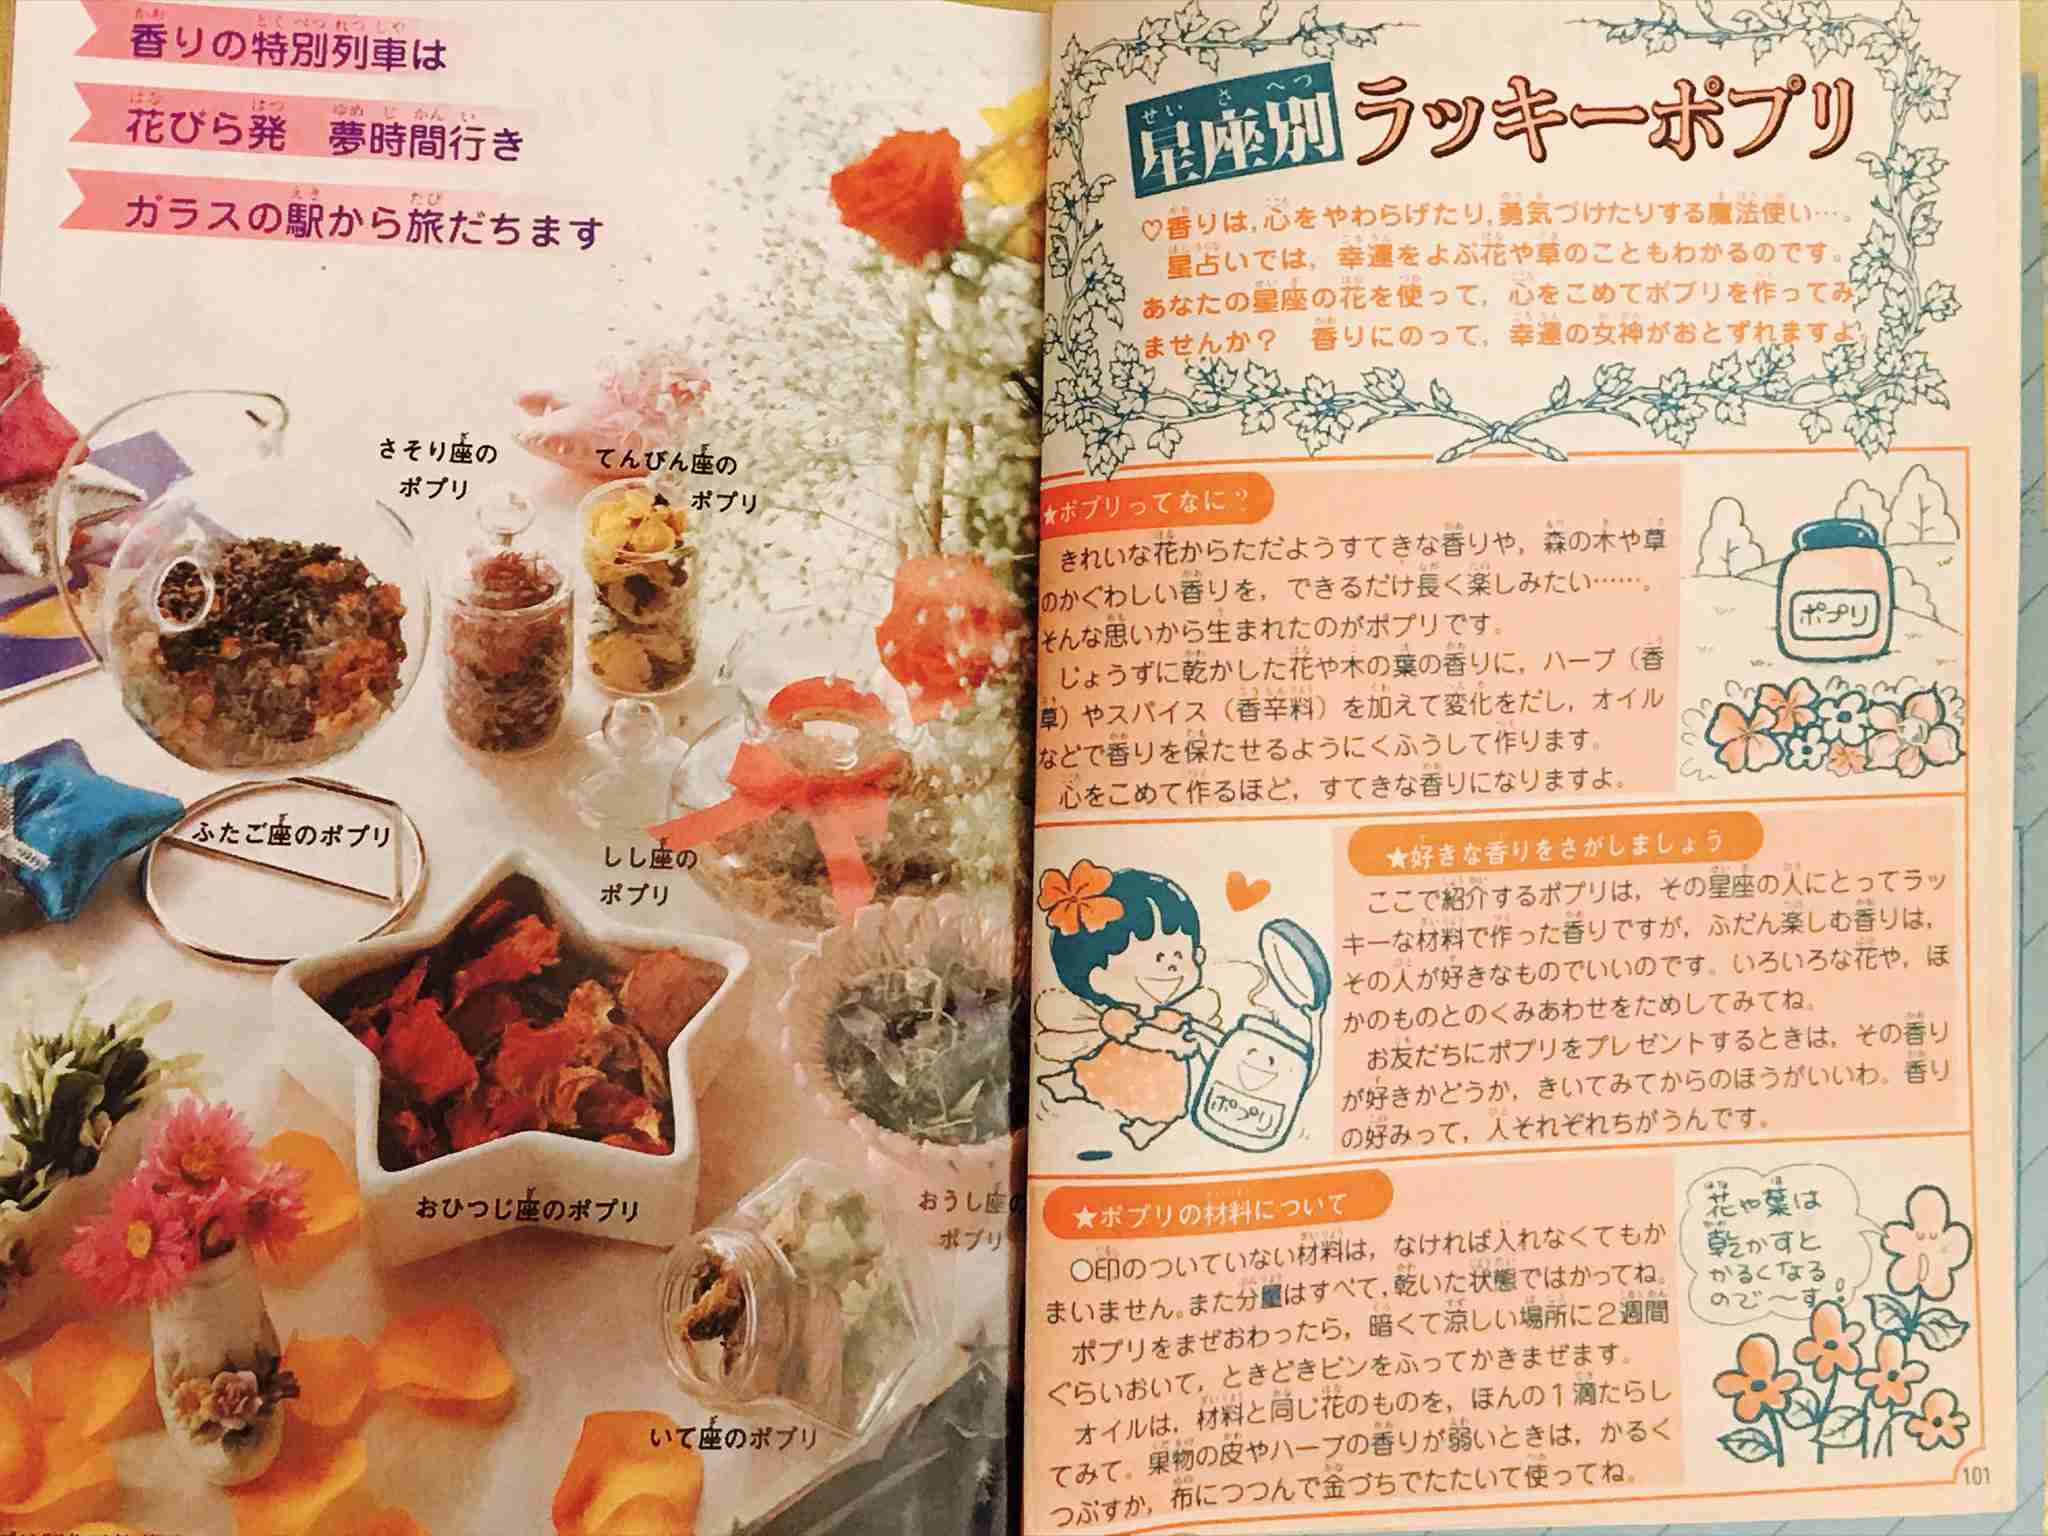 香りの特別列車は
花びら発　夢時間行き
ガラスの駅から旅だちます
さそり座の
ポプリ
てんびん座の
ポプリ
ふたご座のポプリ
しし座の
ポプリ
おひつじ座のポプリ
おうし座の
ポプリ
いて座のポプリ
星座別 ラッキーポプリ
♡香りは,心をやわらげたり,勇気づけたりする魔法使い…。
星占いでは，幸運をよぶ花や草のこともわかるのです。
あなたの星座の花を使って，心をこめてポプリを作ってみ
ませんか？　香りにのって，幸運の女神がおとずれますよ。
★ポプリってなに？
きれいな花からただようすてきな香りや，森の木や草
のかぐわしい香りを，できるだけ長く楽しみたい……。
そんな思いから生まれたのがポプリです。
じょうずに乾かした花や木の葉の香りに，ハーブ（香
草）やスパイス（香辛料）を加えて変化をだし，オイル
などで香りを保たせるようにくふうして作ります。
心をこめて作るほど，すてきな香りになりますよ。
ポプリ
★好きな香りをさがしましょう
ここで紹介するポプリは，その星座の人にとってラッ
キーな材料で作った香りですが，ふだん楽しむ香りは，
その人が好きなものでいいのです。いろいろな花や，ほ
かのものとのくみあわせをためしてみてね。
お友だちにポプリをプレゼントするときは，その香り
が好きかどうか，きいてみてからのほうがいいわ。香り
の好みって，人それぞれちがうんです。
ポプリ
★ポプリの材料について
○印のついていない材料は，なければ入れなくてもか
まいません。また分量はすべて，乾いた状態ではかってね。
ポプリをまぜおわったら，暗くて涼しい場所に２週間
ぐらいおいて，ときどきビンをふってかきまぜます。
オイルは，材料と同じ花のものを，ほんの１滴たらし
てみて。果物の皮やハーブの香りが弱いときは，かるく
つぶすか，布につつんで金づちでたたいて使ってね。
花や葉は
乾かすと
かるくなる
ので〜す。
101